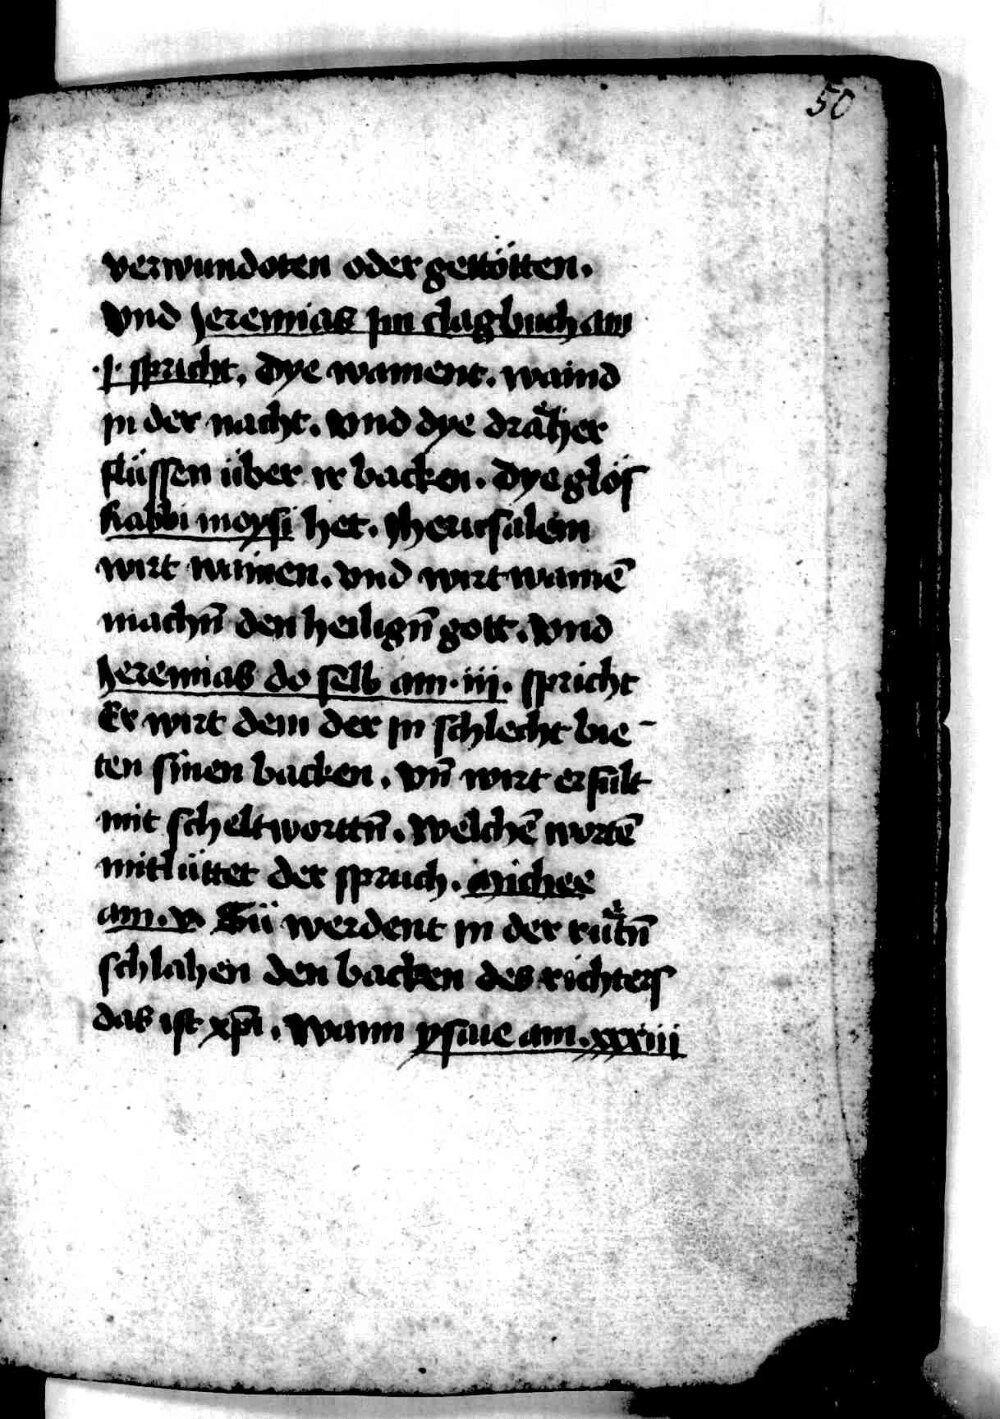 50
verwundoten oder gettötten.
vnd Jeremias jm clagbuch am
.j. spricht. dye wament. waind
jn der nacht. vnd dye dräher
flüssen über ir backen. dye glöſ
Rabbi moysi het. Jherusalem
wirt wainen. vnd wirt wainē
machn̄ den heilign̄ gott. vnd
Jeremias do selb am .iij. spricht
Er wirt dem der jn schlecht bie-
ten sinen backen. vn̄ wirt erfult
mit scheltwortn̄. welchē wortē
mitlüttet der spruch. Michee
am .v. Sü werdent in der rütn̄
schlahen den backen des richters
das ist xp̄i. wann ysaie am .xxxiii